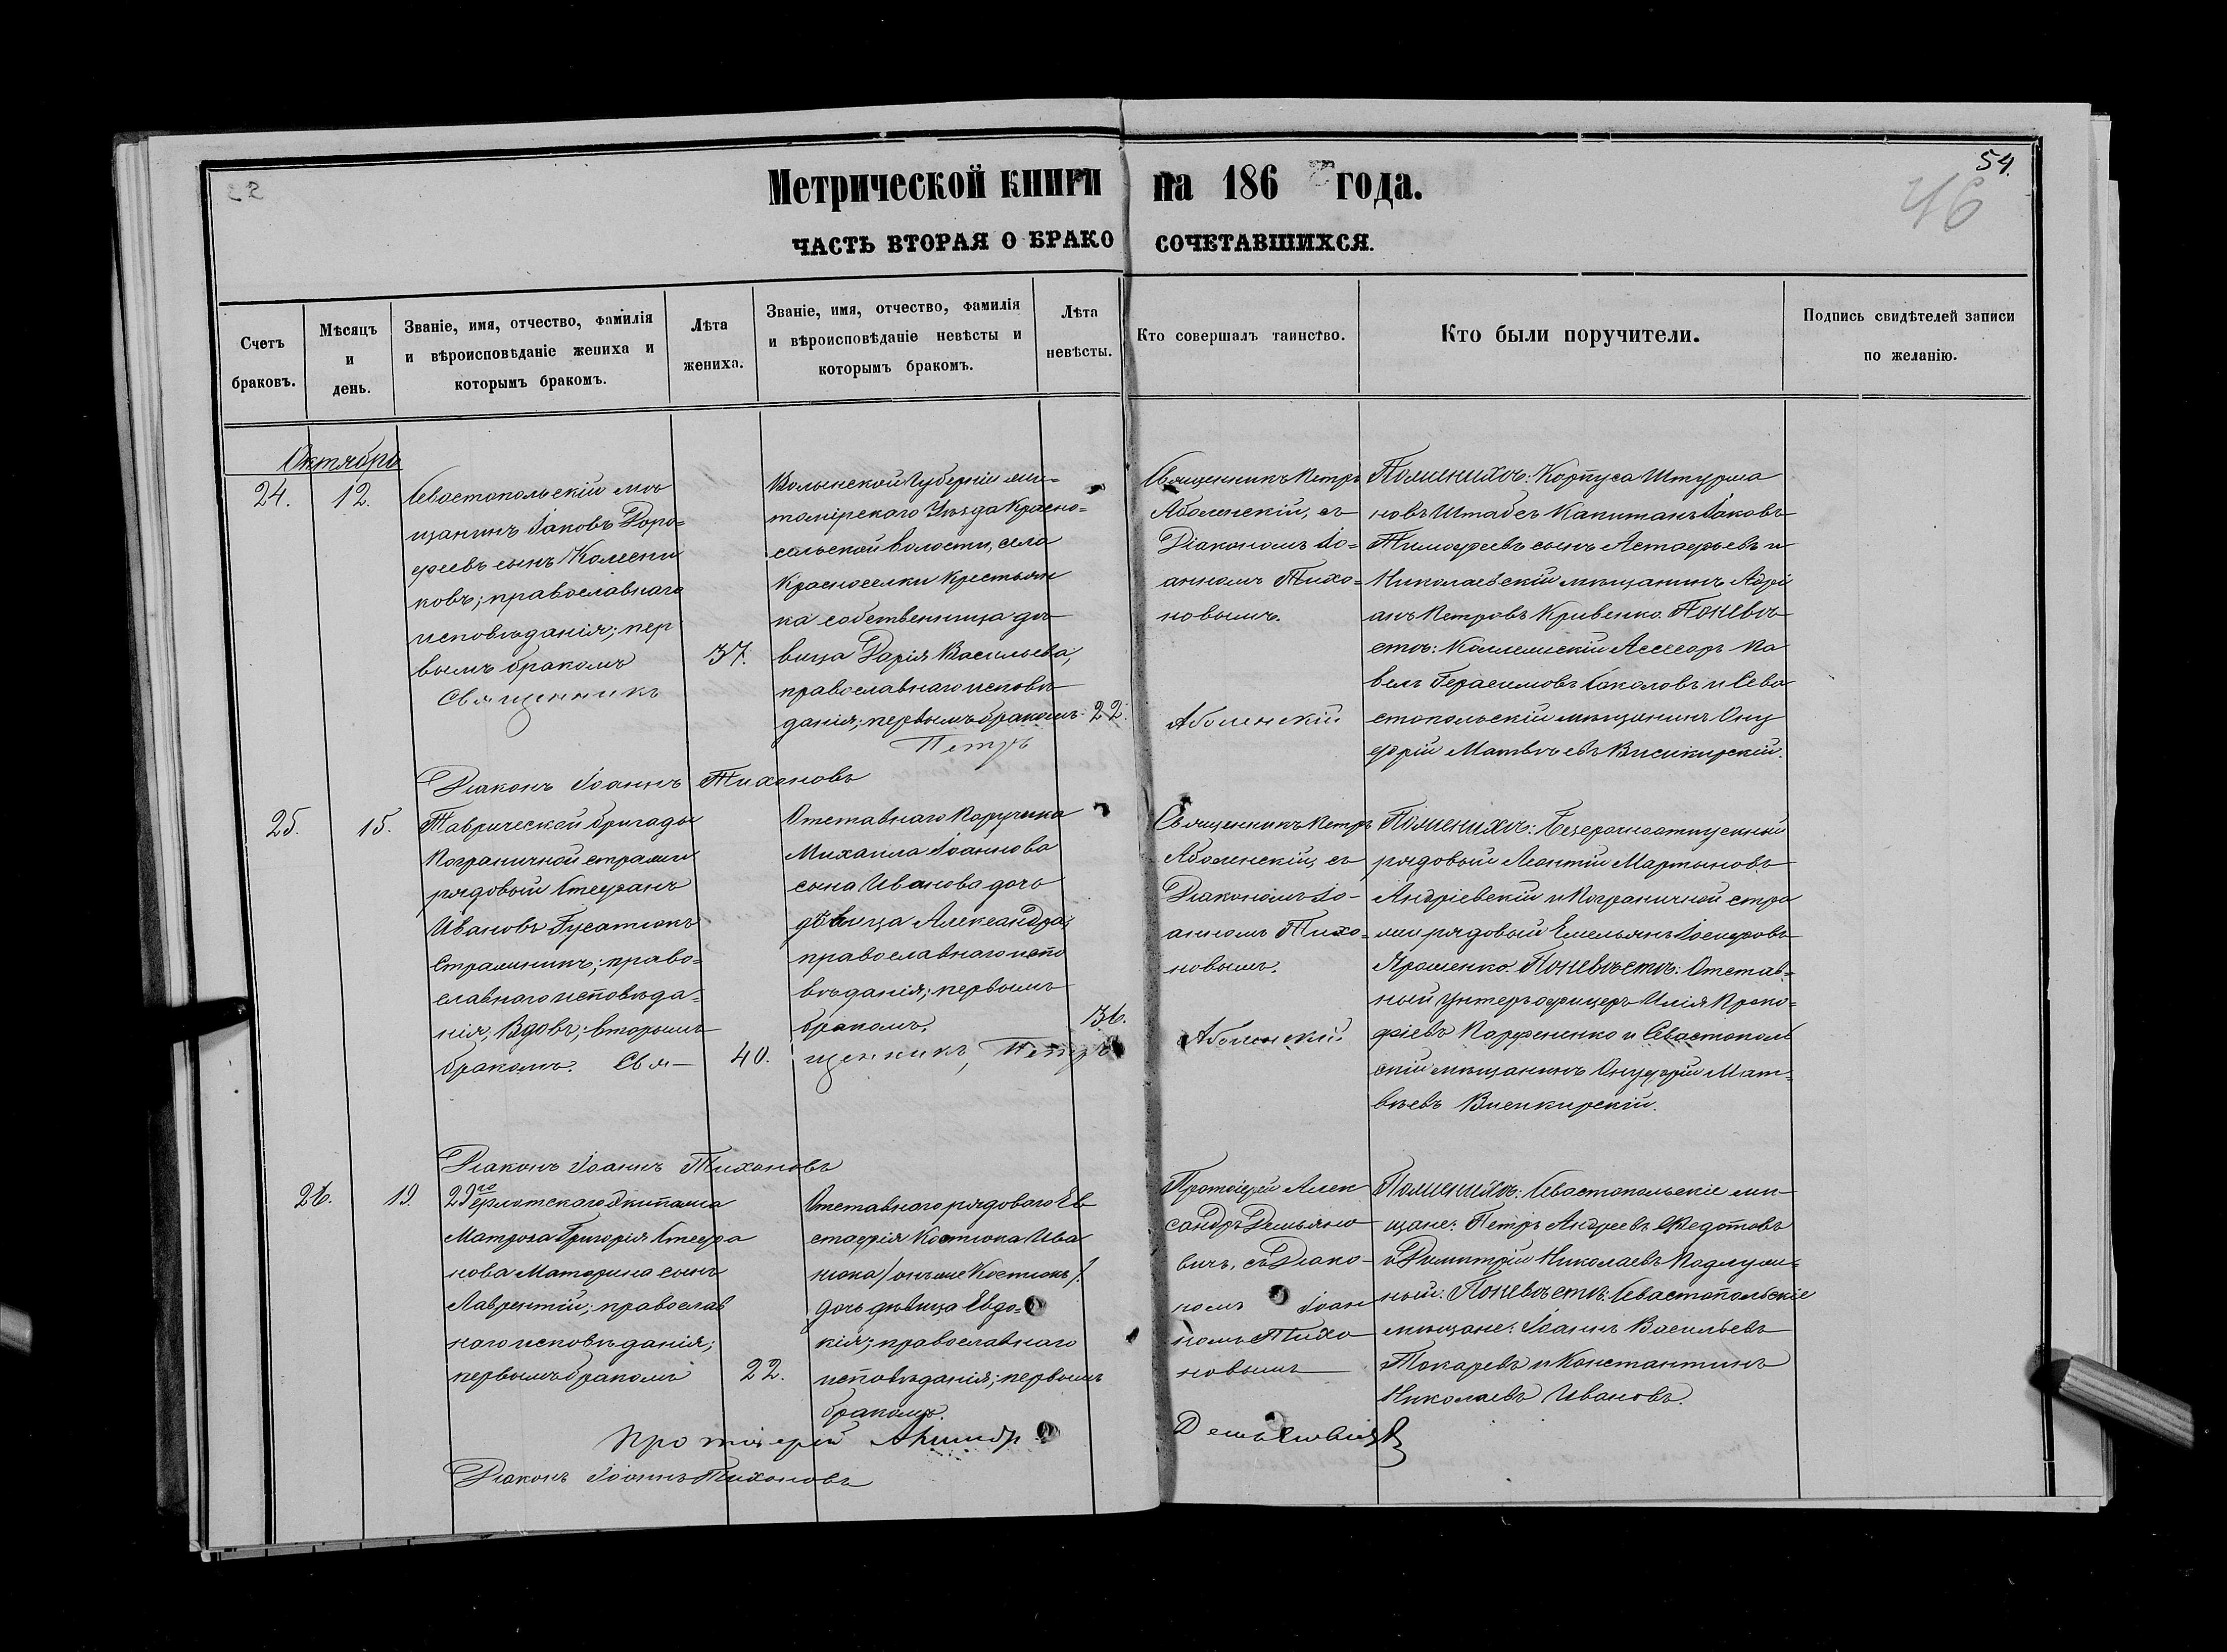 54.
46
Метрической книги на 186 года.
ЧАСТЬ ВТОРАЯ О БРАКОСОЧЕТАВШИХСЯ.
Счетъ браковъ.
Мѣсяцъ и день.
Званіе, имя, отчество, фамилія
и вѣроисповѣданіе жениха и
которымъ бракомъ.
Лѣта жениха.
Званіе, имя, отчество, фамилія
и вѣроисповѣданіе невѣсты и
которымъ бракомъ.
Лѣта невѣсты.
Кто совершалъ таинство.
Кто были поручители.
Подпись свидѣтелей записи
по желанію.
Октябрь
24.
12.
Севастопольскій мѣ
щанинъ Іаковъ Доро=
феевъ сынъ Колесни
ковъ; православнаго
исповѣданія; пер
вымъ бракомъ
37.
Волынской Губерніи Жи=
томірскаго Уѣзда Красно=
сельской волости, села
Красноселки Крестьян
ка собственница дѣ
вица Дарія Васильева,
православнаго исповѣ
данія; первымъ бракомъ
22.
Священникъ Петръ
Аболенскій, съ
Діакономъ Іо=
анномъ Тихо=
новымъ.
По женихѣ: Корпуса Штурма
новъ Штабсъ Капитанъ Іаковъ
Тимофеевъ сынъ Астафьевъ и
Николаевскій мѣщанинъ Адрі
анъ Петровъ Кривенко. По невѣ
стѣ: Коллежскій Ассесоръ Па
велъ Герасимовъ Соколовъ и Сева
стопольскій мѣщанинъ Ону
фрій Матвѣевъ Висикирскій.
Священникъ Петръ Аболенскій
Діаконъ Іоаннъ Тихоновъ
25.
15.
Таврической бригады
Пограничной стражи
рядовый Стефанъ
Ивановъ Гусатюкъ
Стражникъ; право=
славнаго исповѣда=
нія, Вдовъ; вторымъ
бракомъ.
40.
Отставнаго Поручика
Михаила Іоаннова
сына Иванова дочь
дѣвица Александра;
православнаго испо
вѣданія; первымъ
бракомъ.
36.
Священникъ Петръ
Аболенскій, съ
Діакономъ Іо-
анномъ Тихо=
новымъ.
По женихѣ: Безсрочноотпускный
рядовый Леонтій Мартыновъ
Андріевскій и Пограничной стра
жи рядовый Емельянъ Іосифовъ
Ярошенко. По невѣстѣ: Отстав=
ный унтеръ офицеръ Илія Проко=
фіевъ Парфененко и Севастополь
скій мѣщанинъ Онуфрій Мат=
вѣевъ Висикирскій.
Свя- щенникъ, Петръ Аболенскій
Діаконъ Іоаннъ Тихоновъ
26.
19.
29го флотскаго Экипажа
Матроза Григорія Стефа
нова Маторина сынъ
Лаврентій; православ
наго исповѣданія;
первымъ бракомъ
22.
Отставнаго рядоваго Ев
стафія Костюка Ива
нюка / онъ же Костюкъ /.
дочь дѣвица Евдо=
кія; православнаго
исповѣданія; первымъ
бракомъ.
Протоіерей Алек
сандръ Демьяно
вичъ, съ Діако-
номъ Іоан
номъ Тихо
новымъ
По женихѣ: Севастопольскіе мѣ
щане: Петръ Андреевъ Федотовъ
и Димитрій Николаевъ Подлуж=
ный: По невѣстѣ: Севастопольскіе
мѣщане: Іоаннъ Васильевъ
Токаревъ и Константинъ
Николаевъ Ивановъ.
Протоіерей Демьяновичъ
Діаконъ Іоаннъ Тихоновъ